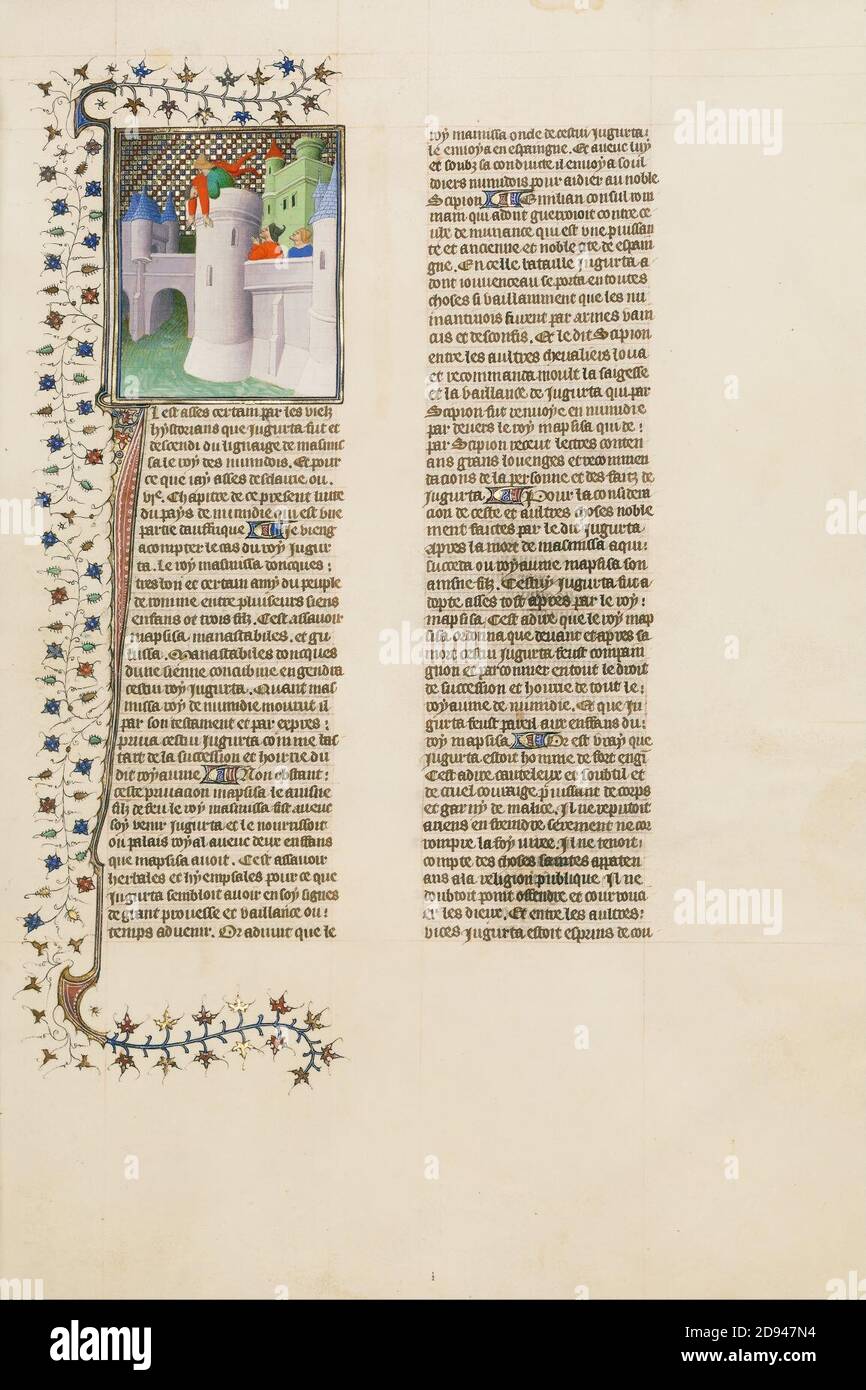 Il est asses certain par les vielz
hystorians que jugurta fut et
descendi du lignaige de masinis
sa le roy des numidois. Et pour
ce que jay asses desclaire ou.
vje. Chapitre de ce present livre
du pays de numidie qui est une
partie dauffrique Je vieng
a compter le cas du roy jugur
ta. Le roy masinissa doncques:
tres bon et certain amy du peuple
de romme entre pluiseurs siens
enfans ot trois filz. Cest assavoir
mapsisa manastabiles. et gu
lussa. Manastabiles doncques
dune sienne concubine engendra
cestui roy jugurta. Quant mas
nissa roy de numidie mourut il
par son testament et par expres:
priva cestui jugurta comme bas
tart de la succession et hoirrie du
dit royaume Non obstant:
ceste privacion mapsisa le aisne
filz de feu le roy masinissa fist avec
soy venir jugurta et le nourrissoit
ou palais royal avec deux enffans
que mapsisa avoit. Cest assavoir
herbales et hyempsales pour ce que
jugurta sembloit avoir en soy signes
de grant prouesse et vaillance ou:
temps advenir. Or advint que le
roy manissa onde de cestui jugurta:
le envoya en espaingne. Et avec luy
et soubz sa conduicte il envoya soul
doiers numidois pour aidier au noble
Scipion Emilian consul rom
main qui adont guerroioit contre ce
ite de numance qui est une puissan
te et ancienne et noble cite de espain
gne. En celle bataille jugurta a
dont jouvenceau se porta en toutes
choses si vaillamment que les nu
mantinois furent par armes vain
cus et desconfis. Et le dit Scipion
entre les aultres chevaliers loua
et recommanda moult la saigesse
et la vaillance de jugurta qui par
Scipion fut renvoye en numidie
par devers le roy mapsisa qui de:
par Scipion receut lectres conten
ans grans louenges et recommen
dacions de la personne et des faitz de
jugurta Pour la considera
cion de ceste et aultres choses noble
ment faictes par le dit jugurta
Apres la mort de masinissa a qui:
succeda ou royaume mapsisa son
aisne filz. Cestuy jugurta fut a
dopte asses tost apres par le roy:
mapsisa. Cest adire que le roy map
sisa ordonna que devant et apres sa
mort cestui jugurta feust compain
gnon et parconnier en tout le droit
de succession et hoirrie de tout le:
royaume de numidie. Et que ju
gurta feust pareil aux enffans du:
roy mapsisa Or est vray que
jugurta estoit homme de fort engi
Cest adire cauteleux et soubtil et
de cruel couraige puissant de corps
et garny de malice. Il ne reputoit
a riens enfreindre serement ne cor
rompre la foy juree. Il ne tenoit:
compte des choses saintes apparten
ans a la religion publique Il ne
doubtoit point offendre et courrouci
er les dieux. Et entre les aultres:
vices jugurta estoit esprins de cou
alamy
Image ID: 2D947N4
www.alamy.com